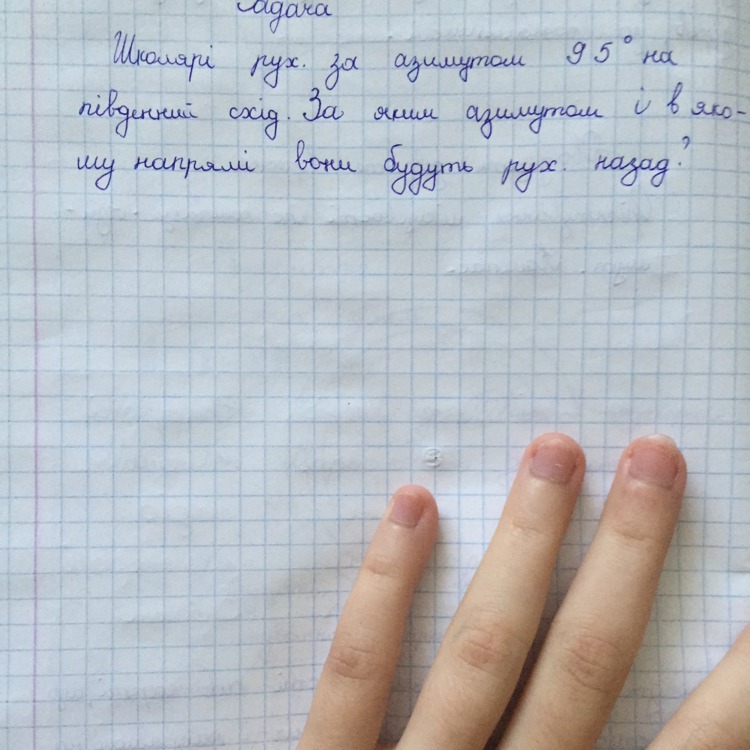 Задача
Школярі рух. за азимутом 95° на
південний схід. За яким азимутом і в яко-
му напрямі вони будуть рух. назад?